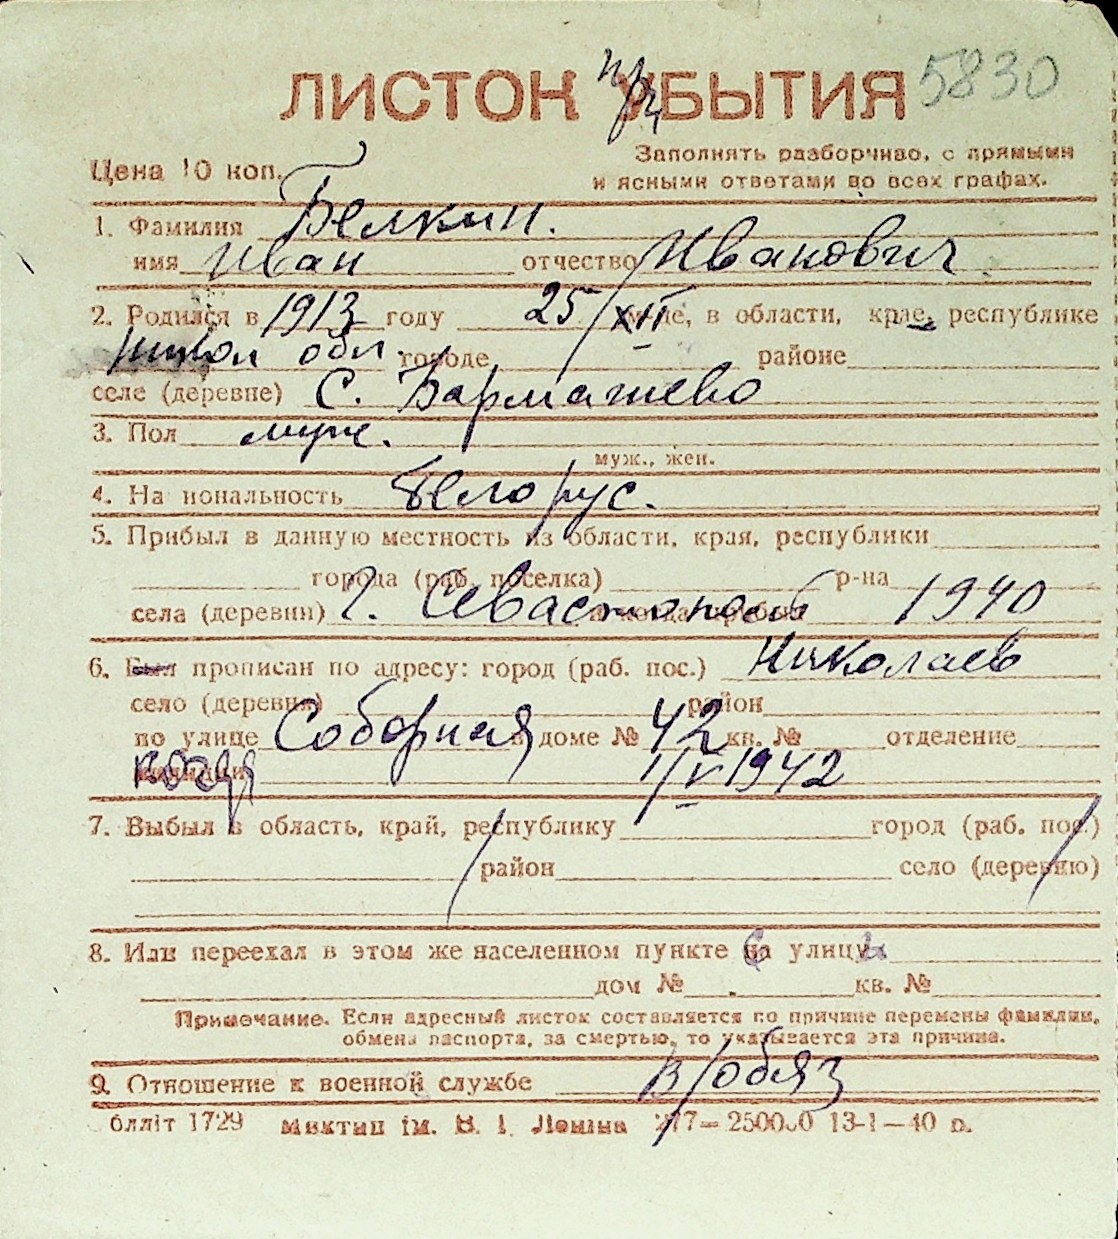 ЛИСТОК УБЫТИЯ 5830
при
Цена 10 коп.
Заполнять разборчиво, с прямыми
и ясными ответами во всех графах.
1. Фамилия Белкин.
имя Иван отчество Иванович
2. Родился в 1913 году 25/XII м-це, в области, крае, республике
Никол обл. городе районе
селе (деревне) С. Бармашево
3. Пол муж.
муж., жен.
4. На иональность Белорус.
5. Прибыл в данную местность из области, края, республики
города (раб. поселка) р-на
села (деревни) г. Севастополь и когда прибыл 1940
6. Был прописан по адресу: город (раб. пос.) Николаев
село (деревня) район
по улице Соборная в доме № 42 кв. № отделение
милиции когда 1/V 1942
7. Выбыл в область, край, республику город (раб. пос.)
район село (деревню)
8. Или переехал в этом же населенном пункте на улицу
дом № кв. №
Примечание. Если адресный листок составляется по причине перемены фамилии,
обмена паспорта, за смертью, то указывается эта причина.
9. Отношение к военной службе в/обяз
блліт 1729 Миктип ім. В. І. Леніна 277—250000 13-1—40 р.